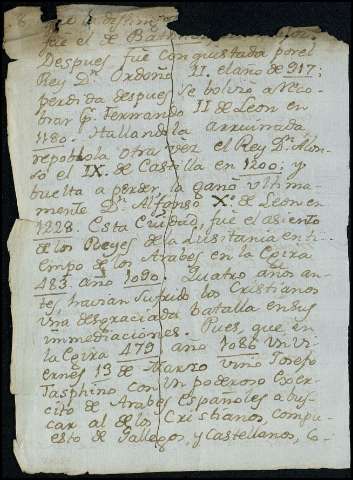 fué el de
Despues fué conquistada por el
Rey Dn. Ordoño II. el ano de 917;
perdida despues se bolvio a reco-
brar pr. Fernando II de Leon en
1180. Hallandola arruinada
repoblola otra vez el Rey Dn. Alon-
só el IX. de Castilla en 1200; y
buelta a perder, la ganó ultima-
mente Dn. Alfonso X.º de Leon en
1228. Esta Ciudad fué el asiento
de los Reyes de la Lusitania en ti-
empo de los Arabes en la Egira
483. año 1090. Quatro años an-
tes, havian sufrido los Cristianos
una desgraciada batalla en sus
immediaciones. Pues, que en
la Egira 479 año 1086 un Vi-
ernes 13 de Marzo vino Josefo
Tasphino con un poderoso Exer-
cito de Arabes españoles a bus-
car al de los Cristianos, compu-
esto de Gallegos, y Castellanos, Co-